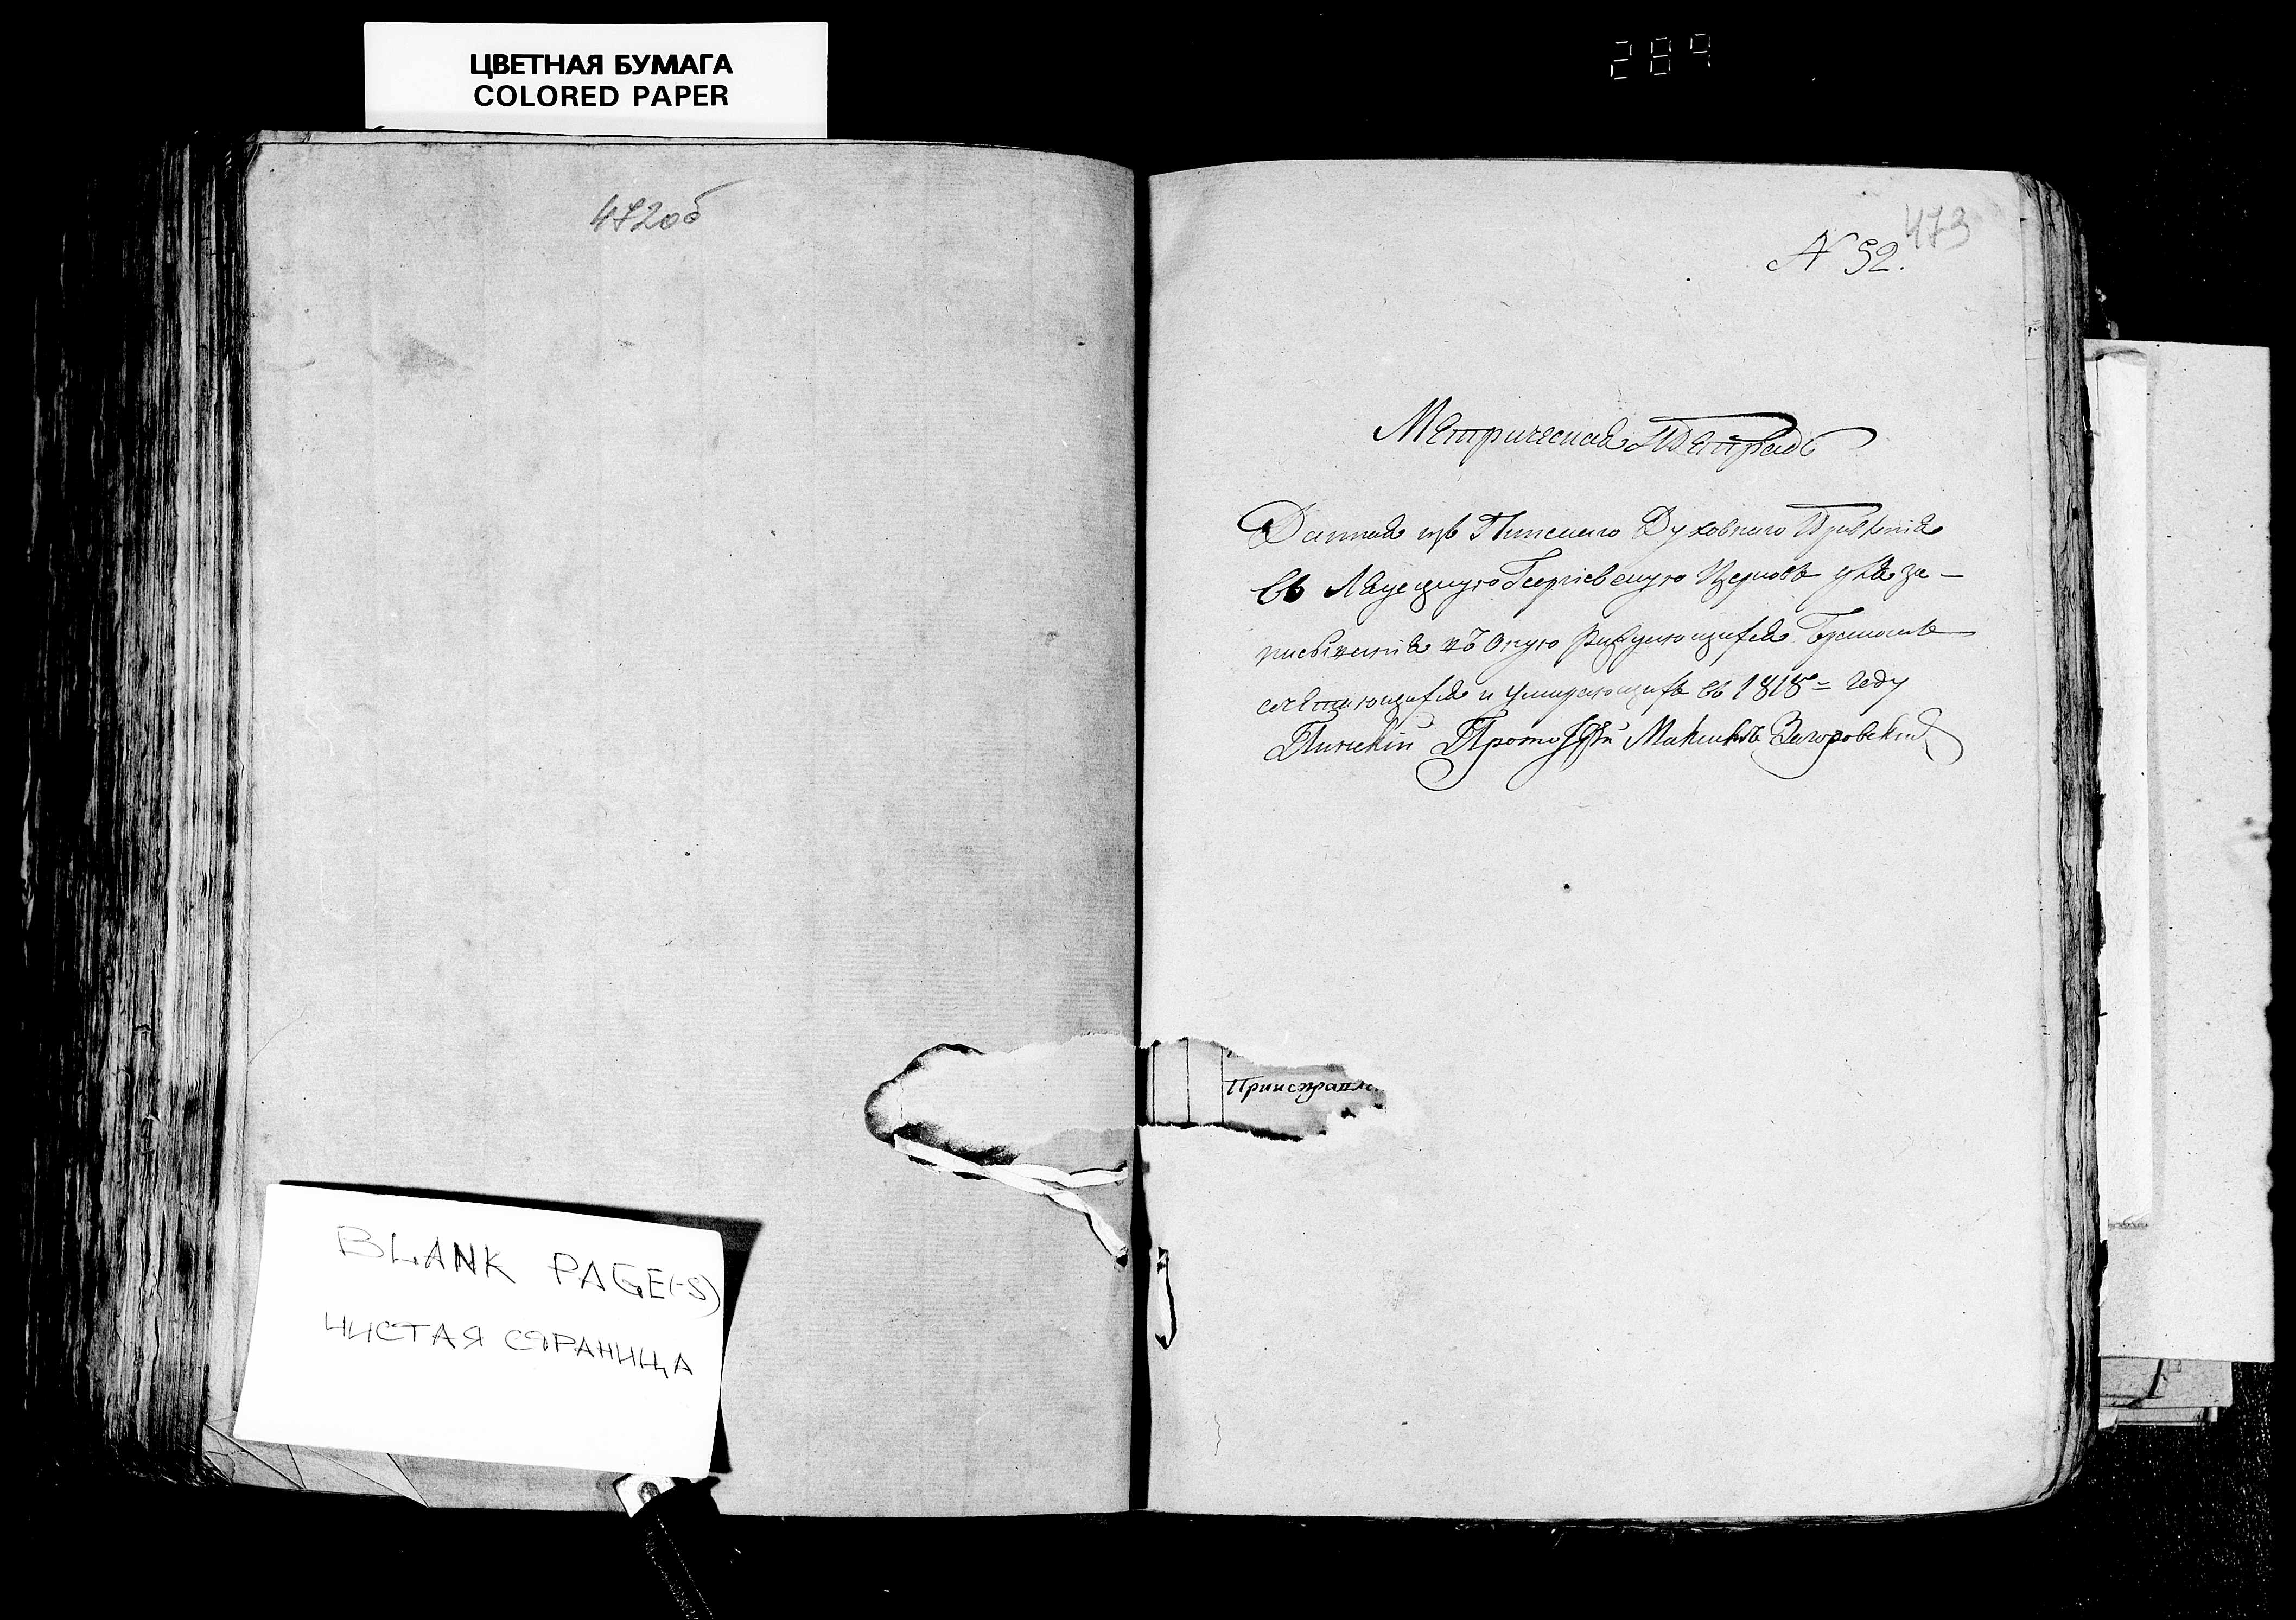 ЦВЕТНАЯ БУМАГА
COLORED PAPER
289
472об
473
N 92.
Метрическая Тетрадь
Данная изъ Пинскаго Духовнаго Правленія
въ Георгіевскую Церковь для за-
писыванія въ оную раждающихся Бракомъ
сочетающихся и умирающихъ въ 1818 = году
Пинскій Прото Загоровскій
BLANK PAGE(-S)
ЧИСТАЯ СТРАНИЦА